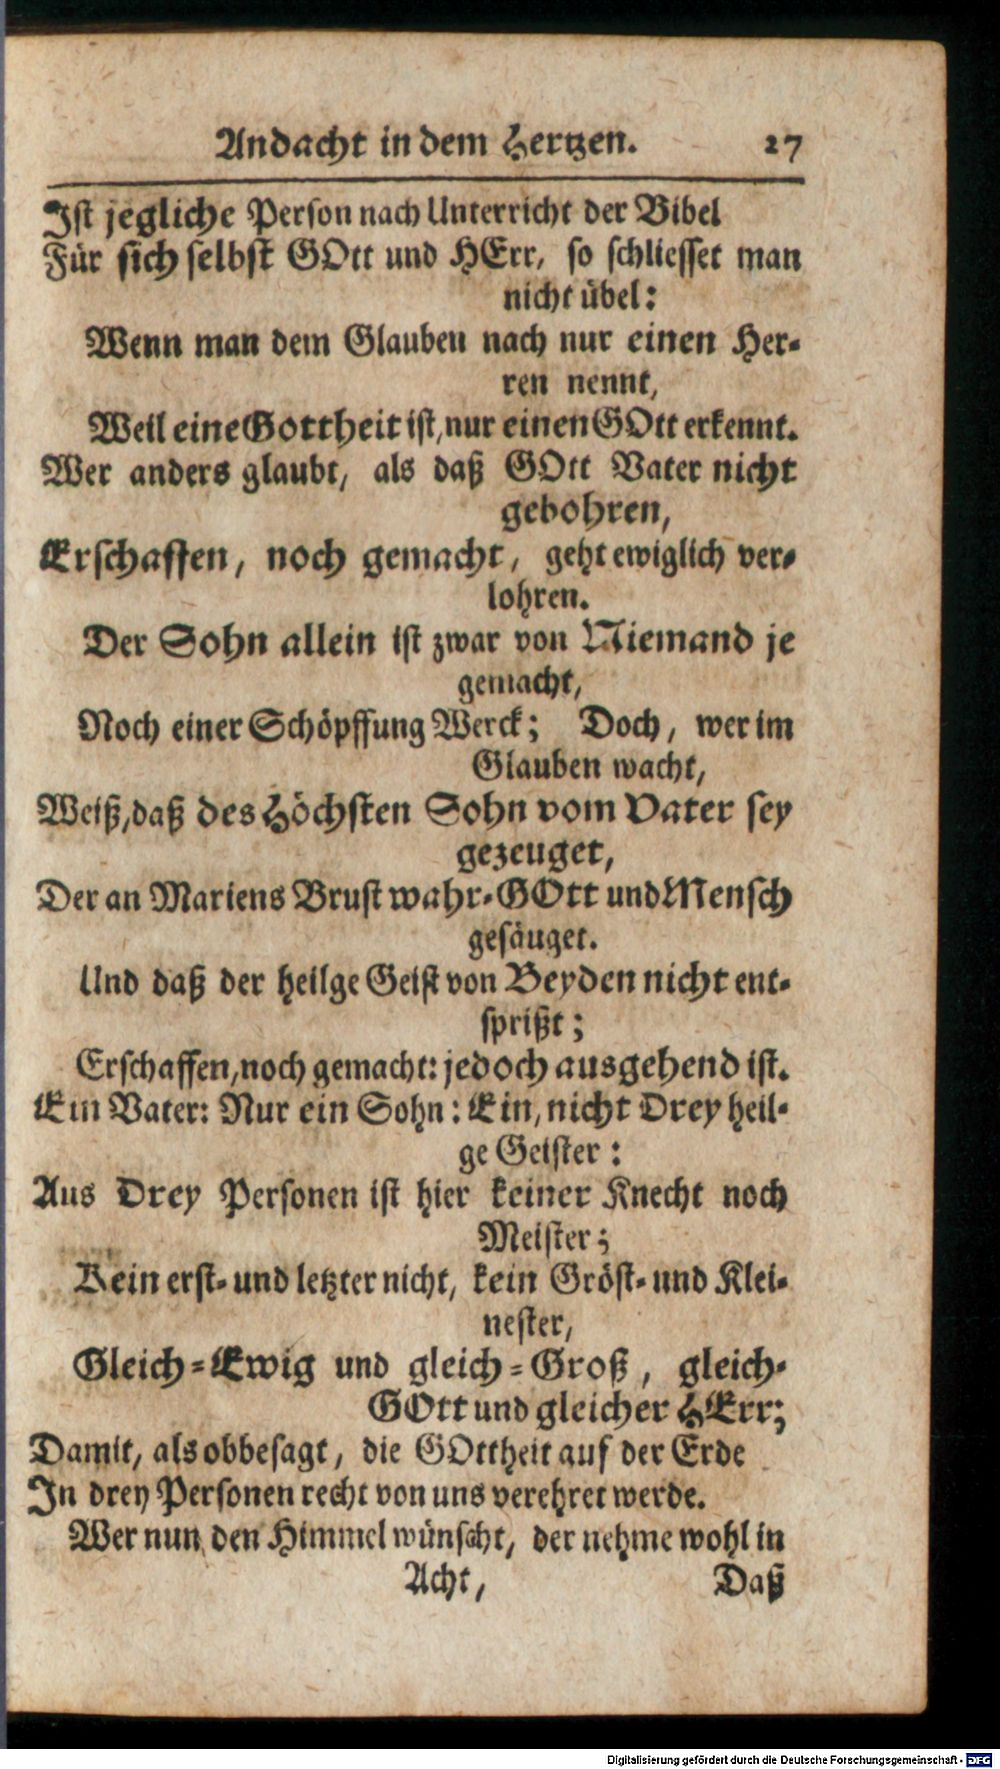 Andacht in dem Hertzen. 27
Ist jegliche Person nach Unterricht der Bibel
Für sich selbst GOtt und HErr, so schliesset man
nicht übel:
Wenn man dem Glauben nach nur einen Her-
ren nennt,
Weil eine Gottheit ist, nur einen GOtt erkennt.
Wer anders glaubt, als daß GOtt Vater nicht
gebohren,
Erschaffen, noch gemacht, geht ewiglich ver-
lohren.
Der Sohn allein ist zwar von Niemand je
gemacht,
Noch einer Schöpffung Werck; Doch, wer im
Glauben wacht,
Weiß, daß des Höchsten Sohn vom Vater sey
gezeuget,
Der an Mariens Brust wahr-GOtt und Mensch
gesäuget.
Und daß der heilge Geist von Beyden nicht ent-
sprißt;
Erschaffen, noch gemacht: jedoch ausgehend ist.
Ein Vater: Nur ein Sohn: Ein, nicht Drey heil-
ge Geister:
Aus Drey Personen ist hier keiner Knecht noch
Meister;
Kein erst- und letzter nicht, kein Gröst- und Klei-
nester,
Gleich-Ewig und gleich-Groß, gleich-
GOtt und gleicher HErr;
Damit, als obbesagt, die GOttheit auf der Erde
In drey Personen recht von uns verehret werde.
Wer nun den Himmel wünscht, der nehme wohl in
Acht, Daß
Digitalisierung gefördert durch die Deutsche Forschungsgemeinschaft - DFG